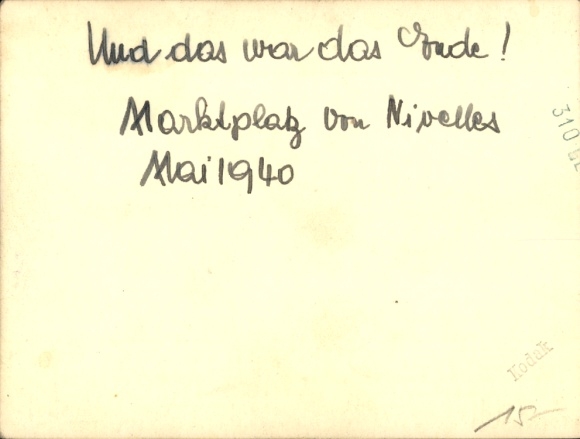 Und das war das Ende!
Marktplatz von Nivelles
Mai 1940
Kodak